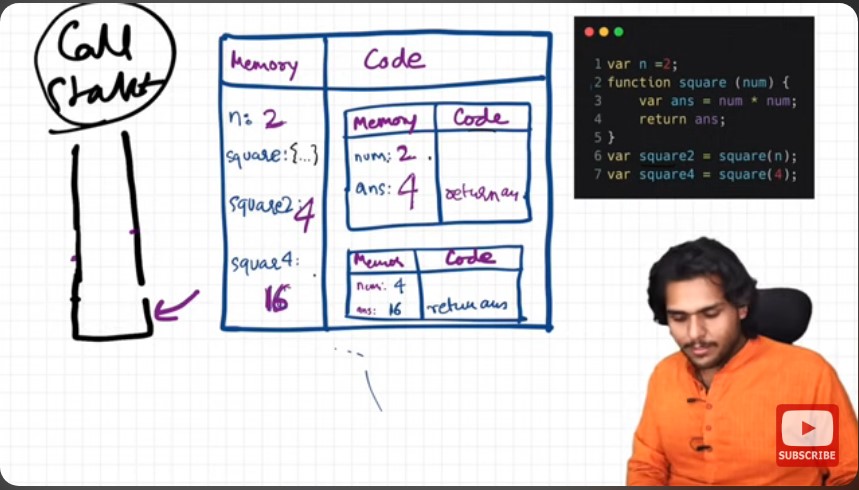 Call
Stack
Memory
Code
n: 2
square: {...}
square2: 4
squar4:
16
Memory
Code
num: 2
ans: 4
return
Memor
Code
num: 4
ans: 16
return ans
1 var n =2;
2 function square (num) {
3 var ans = num * num;
4 return ans;
5 }
6 var square2 = square(n);
7 var square4 = square(4);
SUBSCRIBE